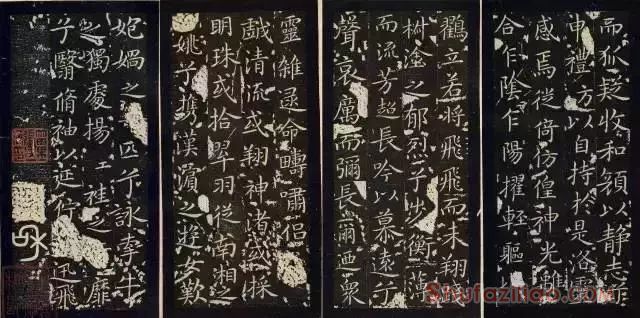 而狐疑收和顏以静志兮
申禮方以自持於是洛靈
感焉徙倚仿偟神光離
合乍陰乍陽擢輕軀
鸛立若將飛飛而未翔
椒塗之郁烈兮步衡薄
而流芳超長吟以慕遠兮
聲哀厲而彌長爾迺衆
靈雜遝命疇嘯侶
戲清流或翔神渚或採
明珠或拾翠羽從南湘之
姚兮携漢濱之遊女歎
媧之匹兮詠牽牛
之獨處揚袿之靡
兮翳脩袖以延佇迅飛
Shufaziliao.com